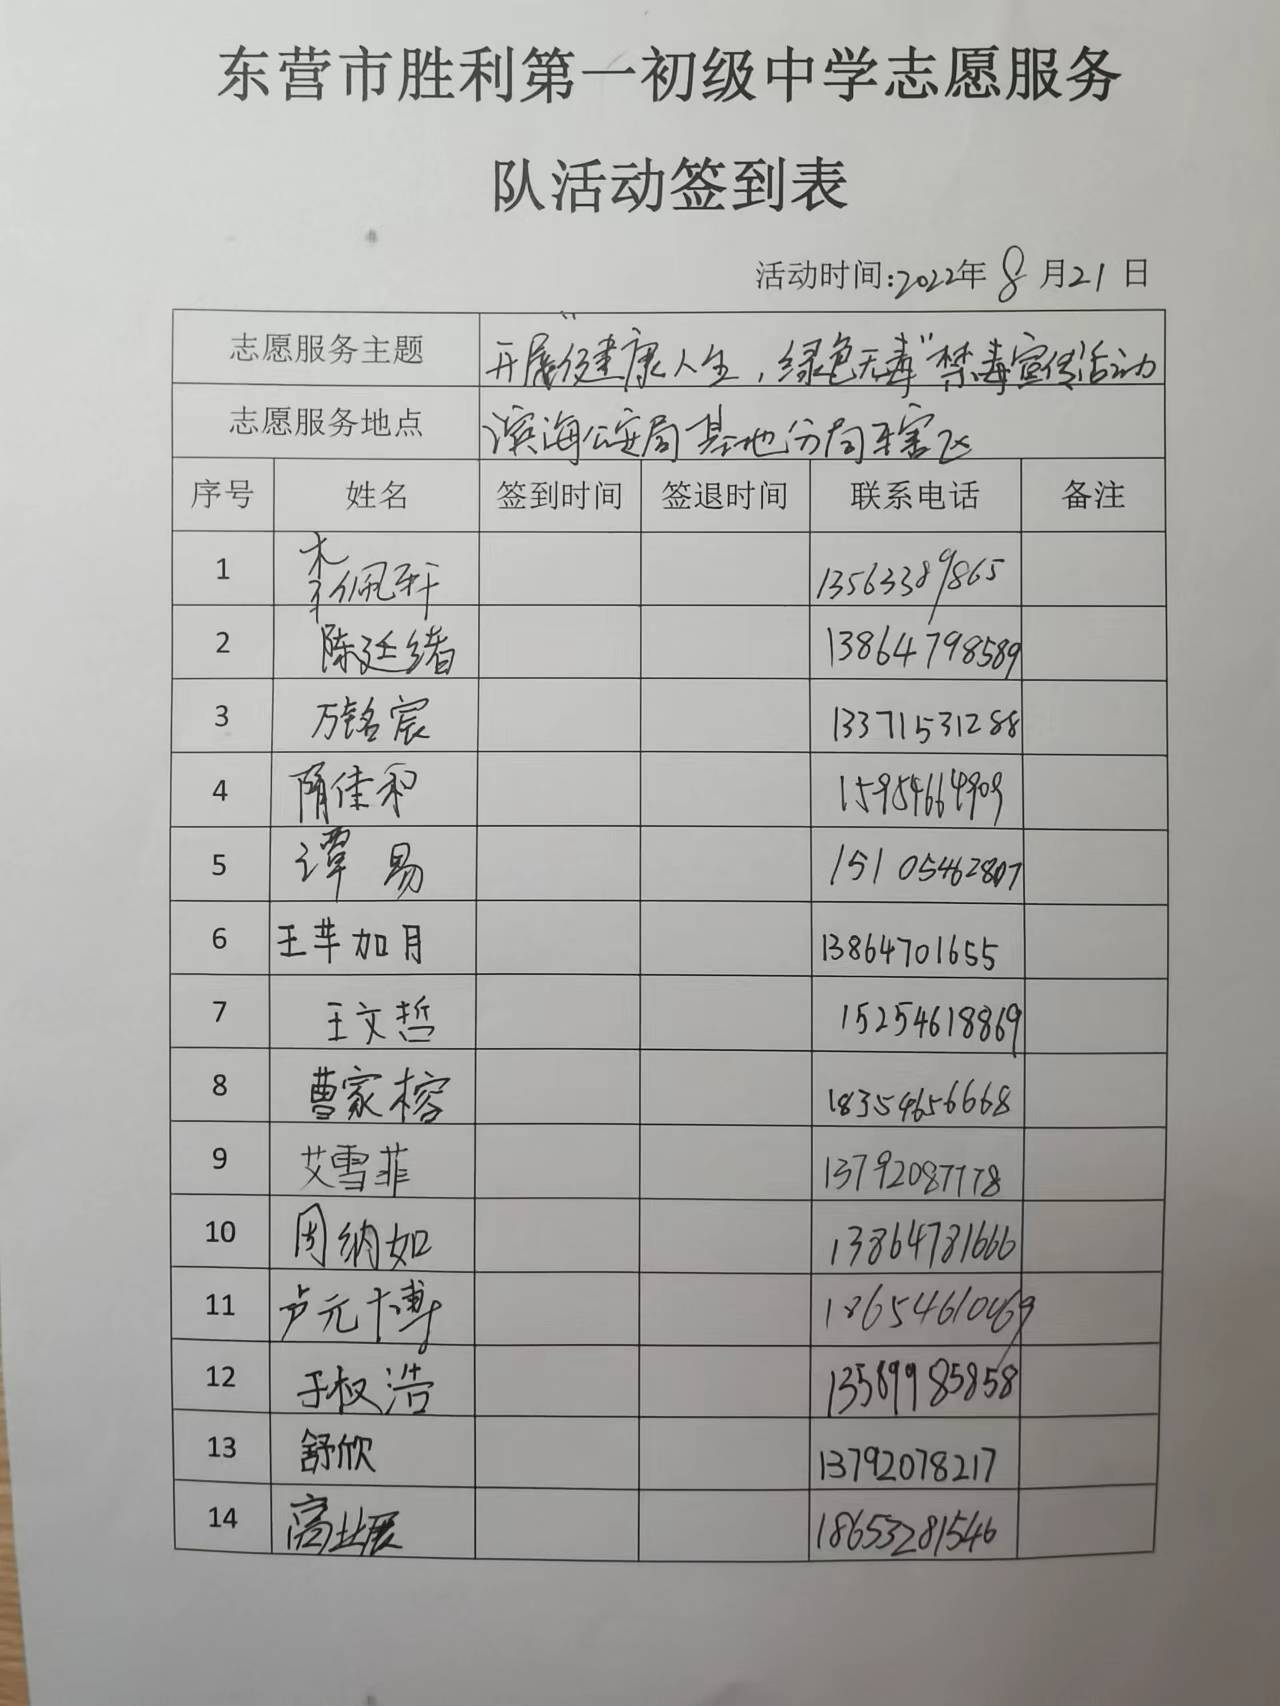 东营市胜利第一初级中学志愿服务
队活动签到表
活动时间:2022年 8 月21 日
志愿服务主题 开展“健康人生，绿色无毒”禁毒宣传活动
志愿服务地点 滨海公安局基地分局辖区
序号 姓名 签到时间 签退时间 联系电话 备注
1 李佩轩 13563389865
2 陈廷绪 13864798589
3 万铭宸 13371531288
4 隋佳和 15954664909
5 谭易 15105462807
6 王芈加月 13864701655
7 王文哲 15254618869
8 曹家榕 18354656668
9 艾雪菲 13792087778
10 周纳如 13864781666
11 卢元博 18654610069
12 于权浩 13589985858
13 舒欣 13792078217
14 高业展 18653281546